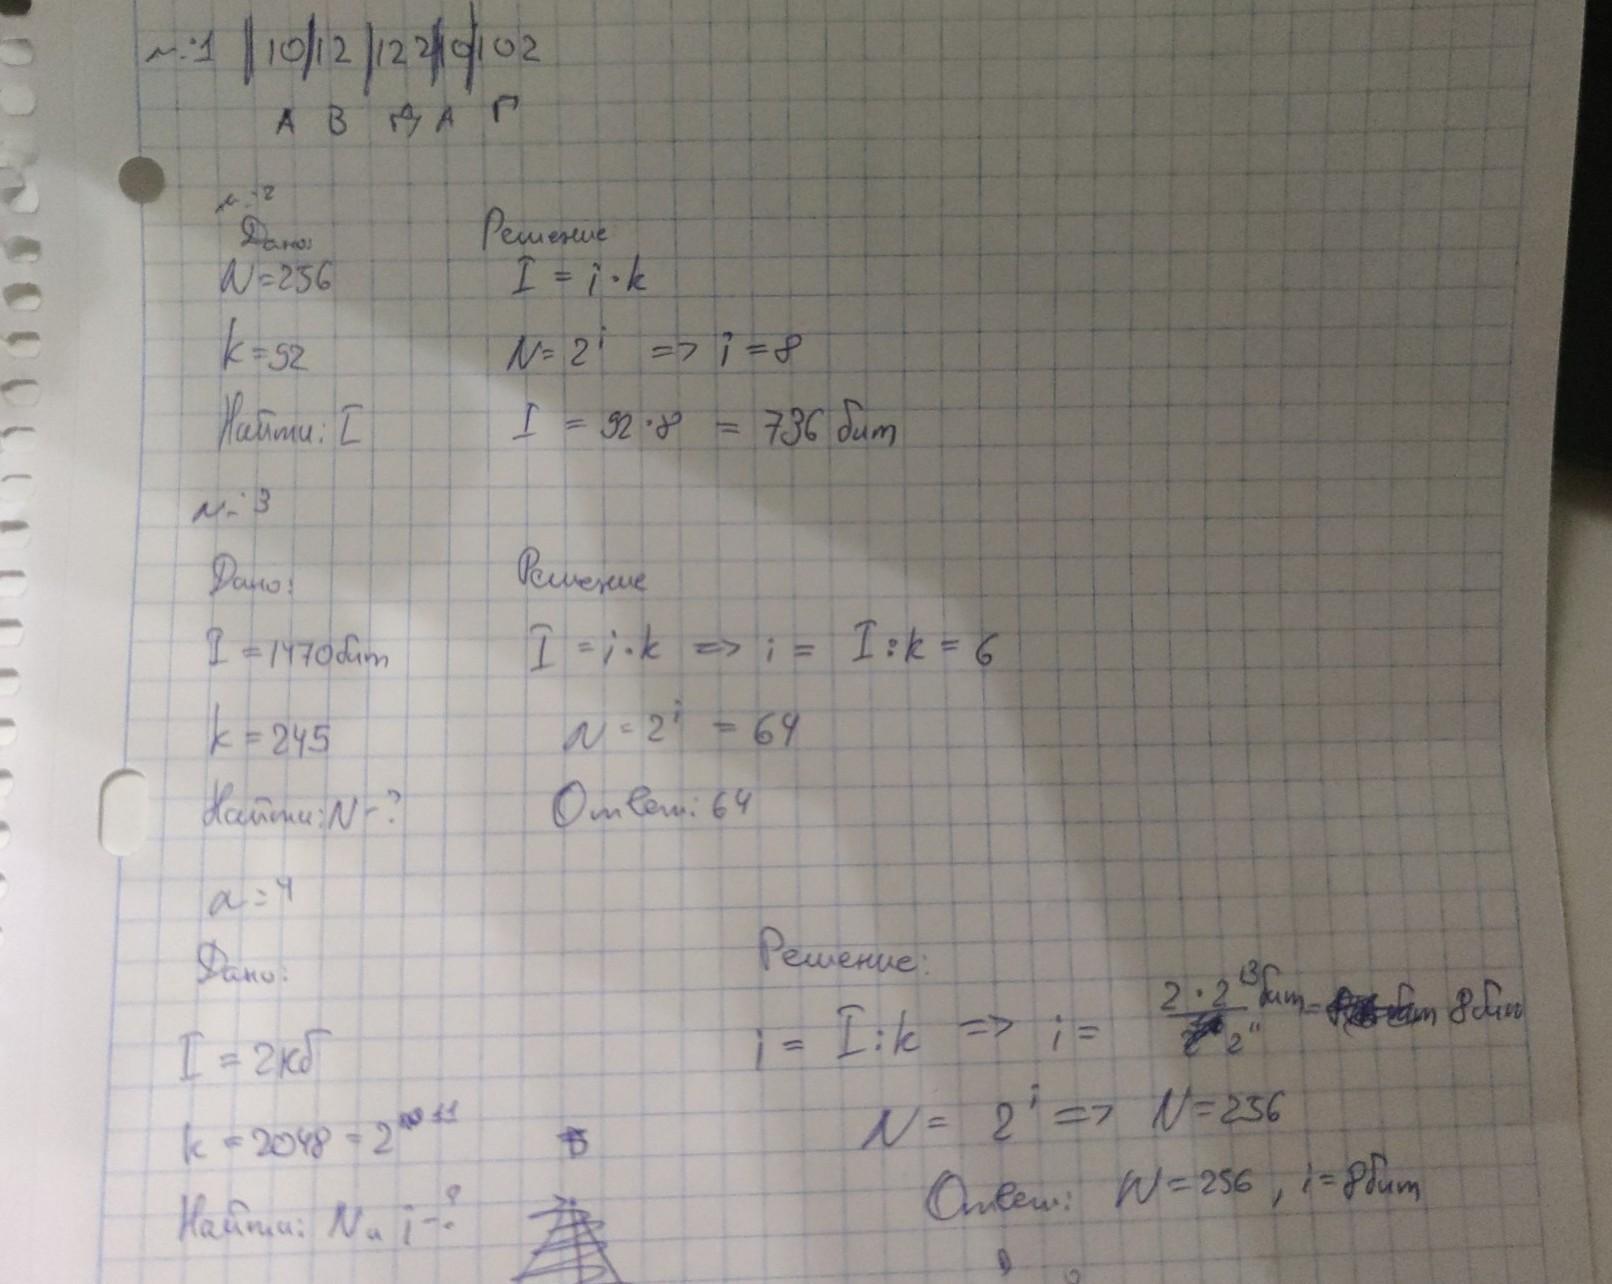 №1 |10|12|122|10|102
А В Д А Г
№2
Дано:
N=256
k=92
Найти: I
Решение
I = i·k
N=2^i => i=8
I = 92·8 = 736 бит
№3
Дано:
I=1470бит
k=245
Найти: N-?
Решение
I=i·k => i= I:k=6
N=2^i=64
Ответ: 64
№4
Дано:
I=2кб
k=2048=2^11
Найти: N и i-?
Решение:
i= I:k => i= 2·2^13бит/2^11= 8бит
N= 2^i => N=256
Ответ: N=256, i=8бит